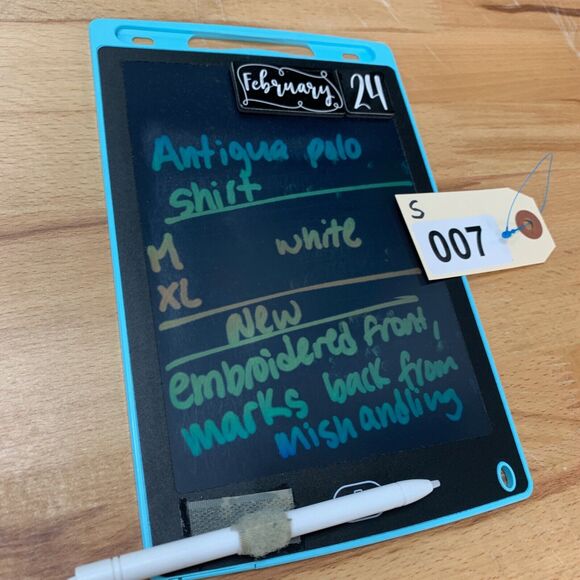 February 24
Antigua polo
shirt
S
007
M white
XL
New
embroidered front,
marks back from
mishandling